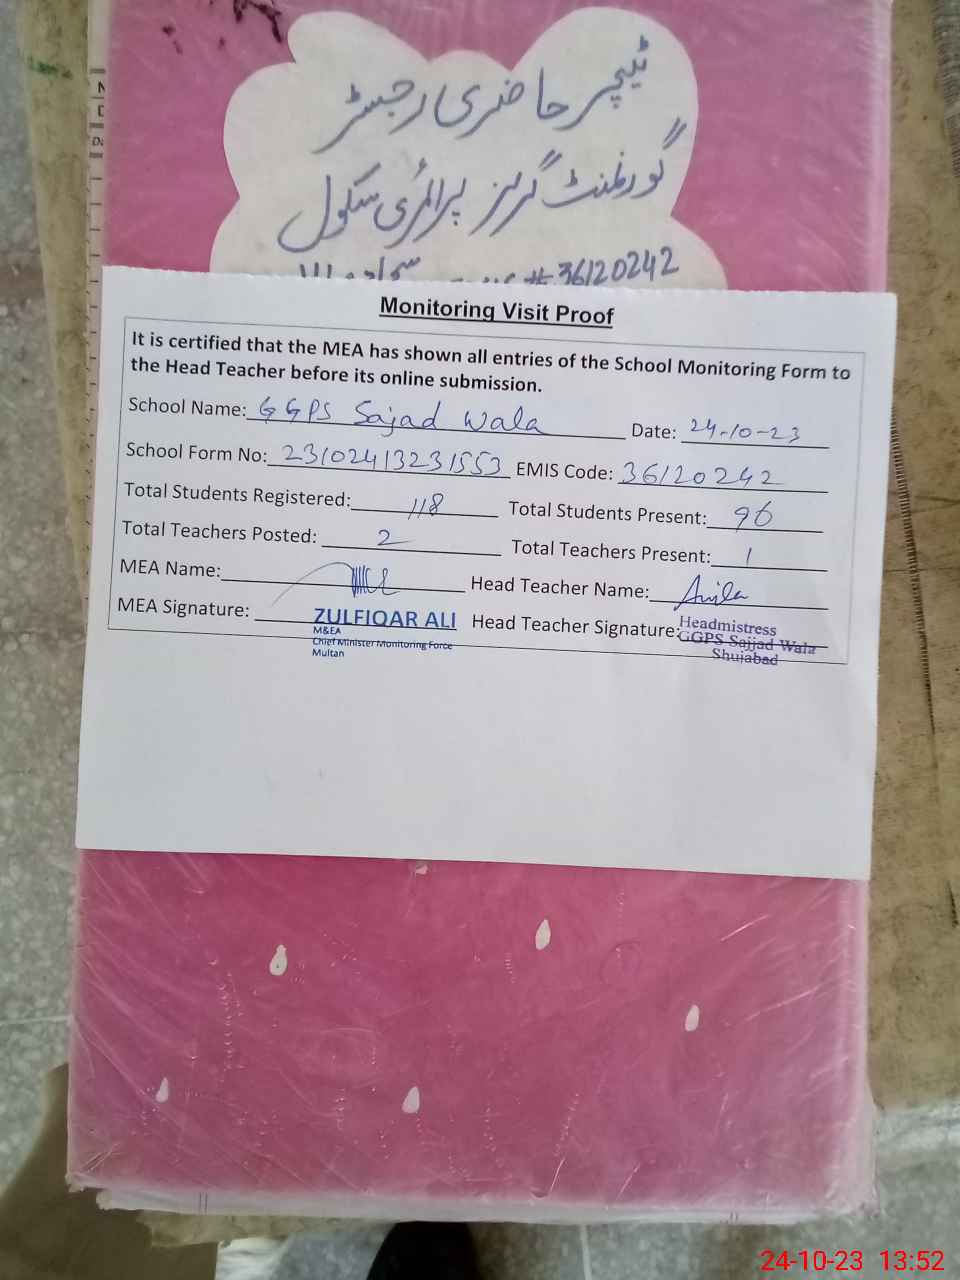 ٹیچر حاضری رجسٹر
گورنمنٹ گرلز پرائمری سکول
36120242 #
Monitoring Visit Proof
It is certified that the MEA has shown all entries of the School Monitoring Form to
the Head Teacher before its online submission.
School Name: GGPS Sajad Wala Date: 24-10-23
School Form No: 23102413231553 EMIS Code: 36120242
Total Students Registered: 118 Total Students Present: 96
Total Teachers Posted: 2 Total Teachers Present: 1
MEA Name: Head Teacher Name: Anila
MEA Signature: ZULFIQAR ALI Head Teacher Signature: Headmistress
M&EA GGPS Sajjad Wala
Chief Minister Monitoring Force Shujabad
Multan
24-10-23 13:52